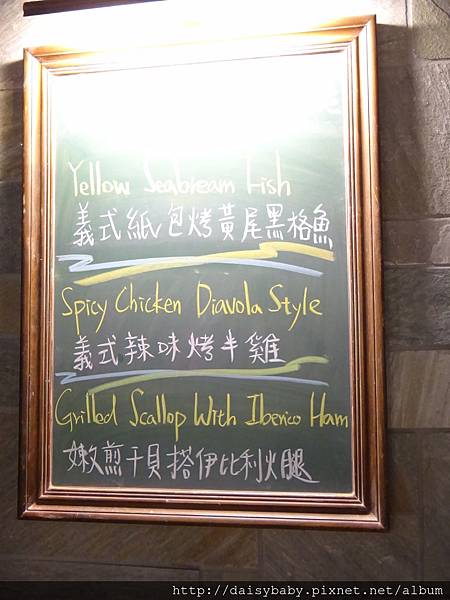 Yellow Seabream Fish
義式紙包烤黃尾黑格魚
Spicy Chicken Diavola Style
義式辣味烤半雞
Grilled Scallop With Iberico Ham
嫩煎干貝搭伊比利火腿
http://daisybaby.pixnet.net/album